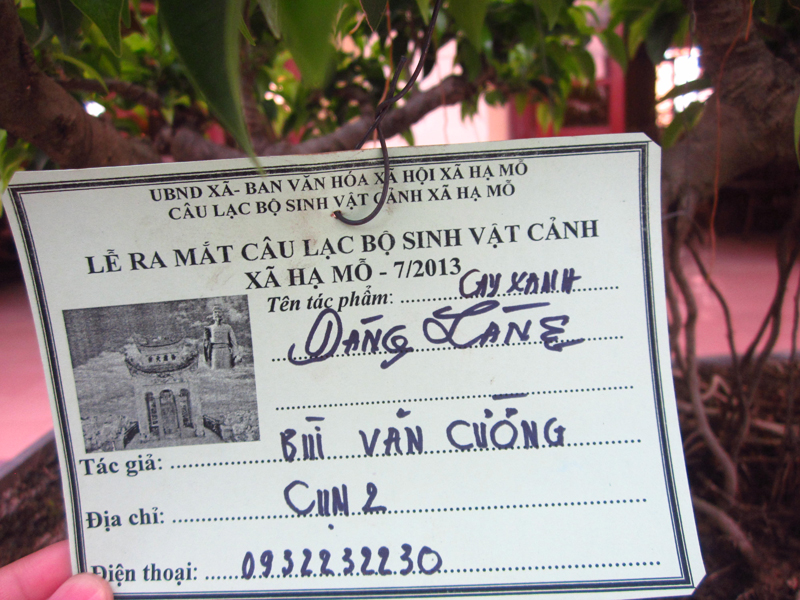 UBND XÃ- BAN VĂN HÓA XÃ HỘI XÃ HẠ MỖ
CÂU LẠC BỘ SINH VẬT CẢNH XÃ HẠ MỖ
LỄ RA MẮT CÂU LẠC BỘ SINH VẬT CẢNH
XÃ HẠ MỖ - 7/2013
Tên tác phẩm: CAY XANH
DÁNG LÀNG
Tác giả: BÙI VĂN CƯỜNG
Địa chỉ: CỤM 2
Điện thoại: 0932232230